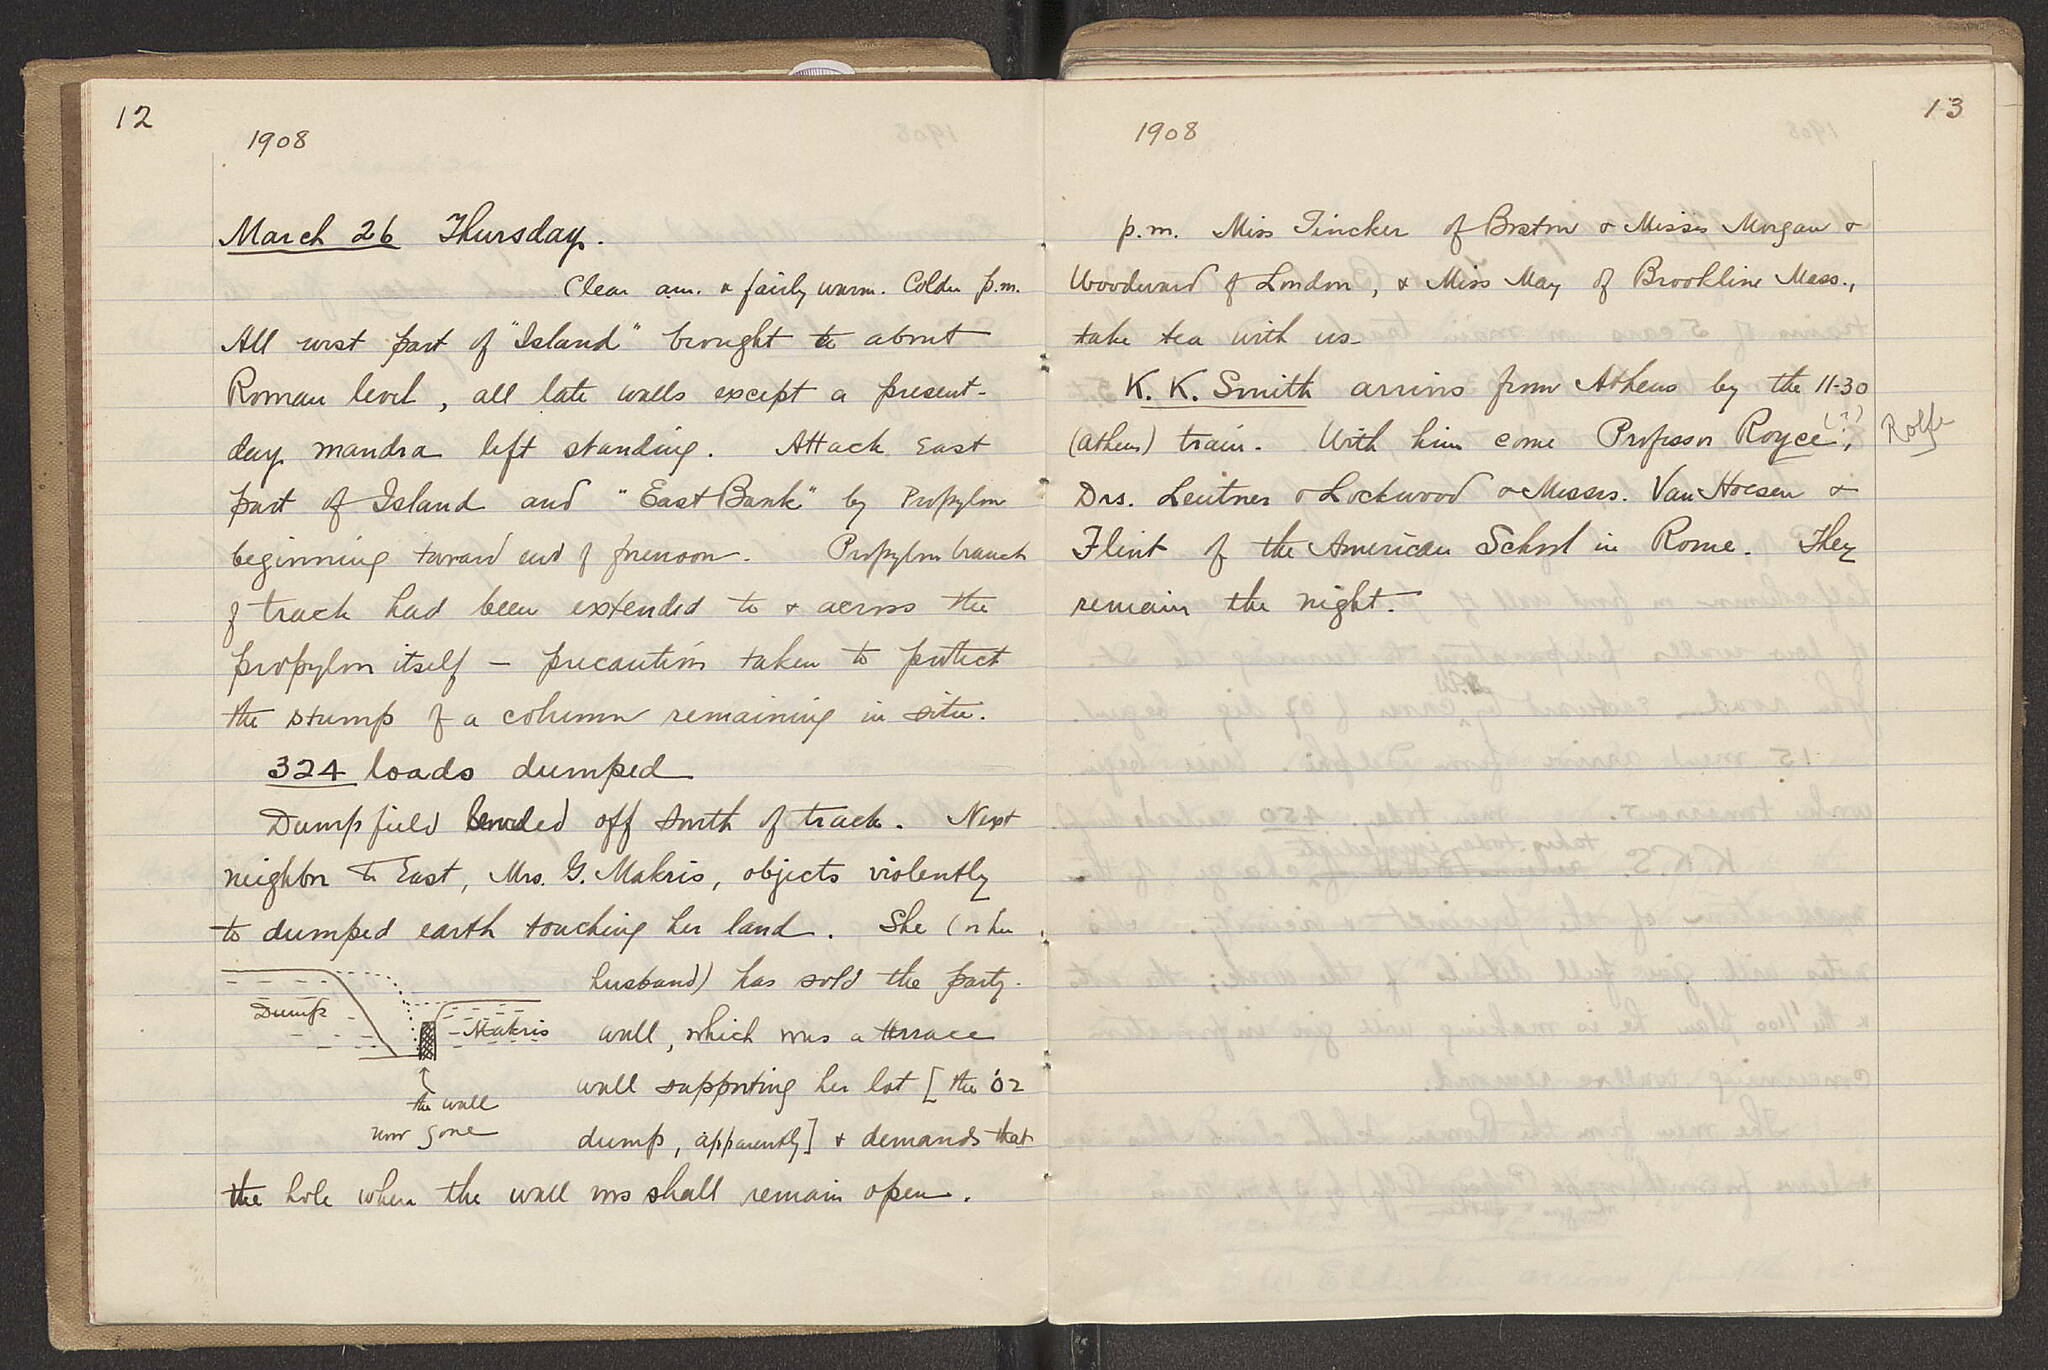 12
1908
March 26 Thursday.
Clear a.m. & fairly warm. Colder p.m.
All west part of "Island" brought to about
Roman level, all late walls except a present-
day mandra left standing. Attack East
part of Island and "East Bank" by Propylon
beginning toward end of forenoon. Propylon branch
of track had been extended to & across the
propylon itself — precaution taken to protect
the stump of a column remaining in situ.
324 loads dumped
Dump field levelled off south of track. Next
neighbor to East, Mrs. G. Makris, objects violently
to dumped earth touching her land. She (or her
husband) has sold the party-
wall, which was a terrace
wall supporting her lot [the '02
dump, apparently] & demands that
the hole where the wall was shall remain open.
Dump
Makris
the wall
now gone
13
1908
p.m. Miss Tincker of Boston & Misses Morgan &
Woodward of London, & Miss May of Brookline Mass.,
take tea with us.
K. K. Smith arrives from Athens by the 11-30
(Athens) train. With him come Professor Royce (?),
Rolfe
Drs. Leutner & Lockwood & Messrs. Van Hoesen &
Flint of the American School in Rome. They
remain the night.